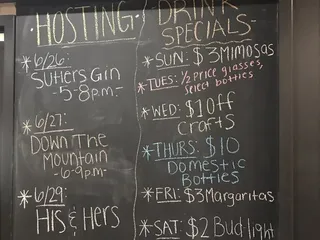 HOSTING/
*6/26:
SUTLERS GIN
-5-8 p.m.-
*6/27:
DOWN THE
MOUNTAIN
-6-9pm-
*6/29:
HIS & HERS
DRINK
SPECIALS-
*SUN: $3 MIMOSAS
*TUES: 1/2 Price glasses,
select bottles
*WED: $1 Off
Crafts
*THURS: $10
Domestic
Bottles
*FRI: $3 Margaritas
*SAT: $2 Bud light